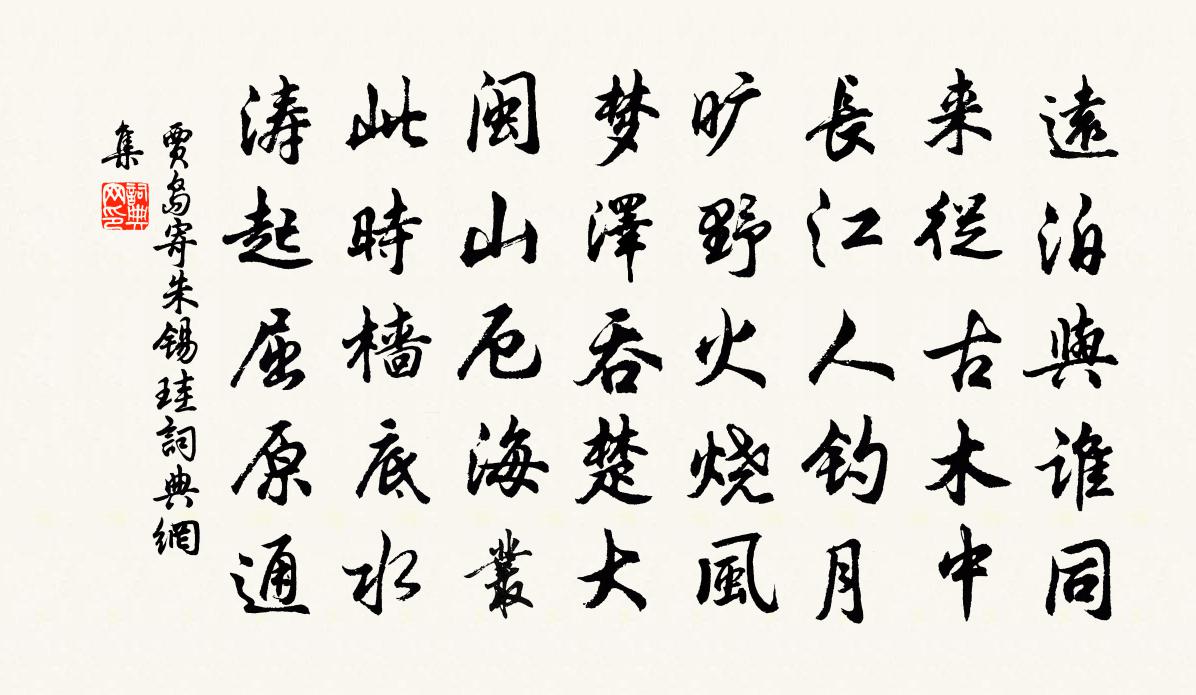 遠泊與谁同
来從古木中
長江人釣月
旷野火烧風
梦澤吞楚大
闽山厄海叢
此時檣底水
涛起屈原通
賈島寄朱錫珪詞典網
集
詞典网印